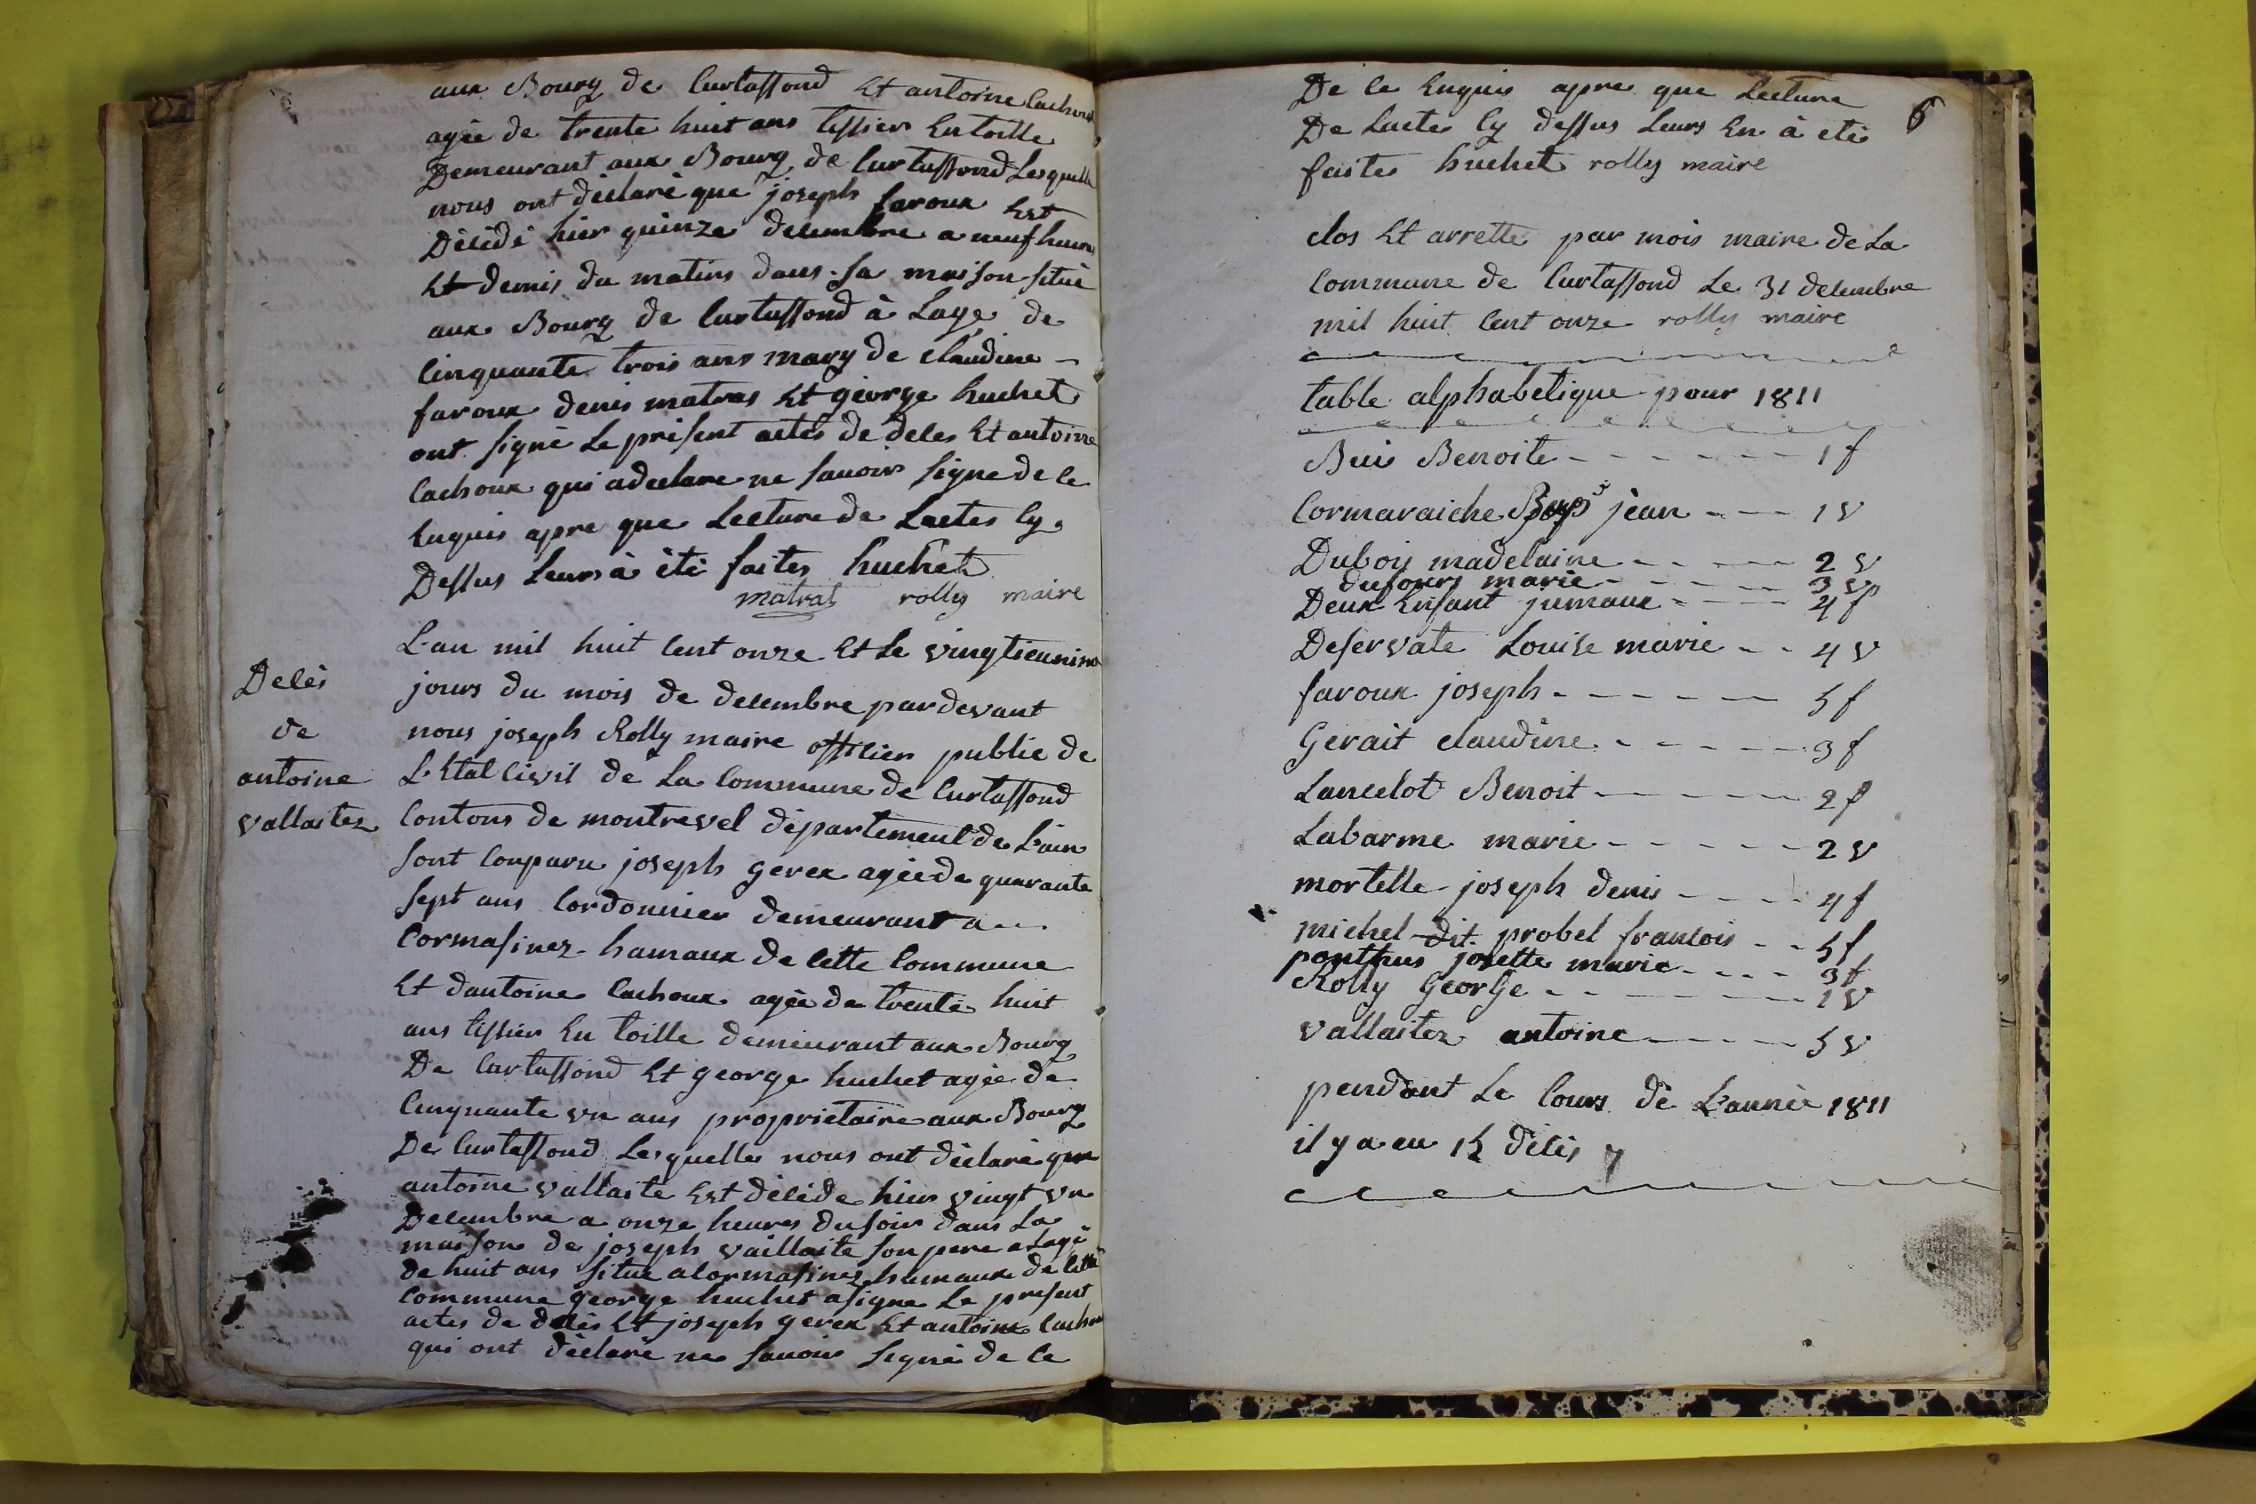 aux Bourg de Curtassond Et antoine Cachoux
agée de trente huit ans tissier En toille
Demeurant aux Bourg de Curtassond Lesquelle
nous ont déclaré que joseph faroux Est
Décédé hier quinze decembre a neuf heure
Et demis du matins dans sa maison situé
aux Bourg de Curtassond à Lage de
Cinquante trois ans mary de claudine
faroux denis matras Et géorge huchet
ont signé Le présent actes de deces Et antoine
Cachoux qui a declare ne savoir signe de ce
Enquis apre que Lecture de Lactes Cy
Dessus Leurs à èté faites huchet
matras rolly maire
L'an mil huit Cent onze Et Le vingtieunime
jours du mois de decembre pardevant
nous joseph Rolly maire officier public de
L'Etat Civil de La Commune de Curtassond
Contons de montrevel département de L'ain
sont Conparu joseph gerex agée de quarante
sept ans Cordonnier demeurant a
Cormasinez hamaux de Cette Commune
Et dantoine Cachoux agée de trente huit
ans tissier En toille demeurant aux Bourg
De Curtassond Et george huchet agée de
Cinquante un ans proprietaire aux Bourg
De Curtassond Lesquelle nous ont déclaré que
antoine vallaite Est décéde hier vingt un
Decembre a onze heures du soir dans La
maison de joseph vaillaite son pere a Lagé
de huit ans situe a Cormasinez hamaux de Cette
Commune george huchet a signe Le present
actes de décès Et joseph gerex Et antoine Cachoux
qui ont déclaré ne savoir signé de Ce
Décès
de
antoine
vallaitez
6
De Ce Enquis apre que Lecture
De Lactes Cy dessus Leurs En à eté
faites huchet rolly maire
clos Et arrette par mois maire de La
Commune de Curtassond Le 31 decembre
mil huit Cent onze rolly maire
table alphabetique pour 1811
Buis Benoite - - - - - - - 1 f
Cormaraiche jéan - - - 1 v
Dubois madelaine - - - - - 2 v
dufours marie - - - - - 3 v
Deux Enfant jumaux - - - - 4 f
Deservate Louise marie - - 4 v
faroux joseph - - - - - - 5 f
Gerait claudine - - - - - 3 f
Lancelot Benoit - - - - - 2 f
Labarme marie - - - - - 2 v
mortelle joseph denis - - - - 4 f
michel dit probel francois - - 5 f
ponthus josette marie - - - - 3 f
Rolly George - - - - - - 1 v
vallaitez antoine - - - - - 5 v
pendant Le Cours de L'année 1811
il y a eu 15 décès